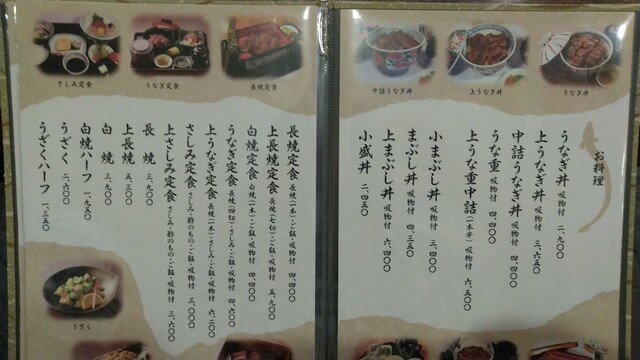 お料理
うなぎ丼 吸物付 二、九〇〇
上うなぎ丼 吸物付 三、六五〇
中詰うなぎ丼 吸物付 四、四〇〇
うな重 吸物付 四、四〇〇
上うな重中詰(一本半)吸物付 六、五〇〇
小まぶし丼 吸物付 三、四〇〇
まぶし丼 吸物付 四、三五〇
上まぶし丼 吸物付 六、四〇〇
小盛丼 二、四五〇
中詰うなぎ丼
上うなぎ丼
うなぎ丼
さしみ定食
うなぎ定食
長焼定食
長焼定食 長焼(一本)・ご飯・吸物付 四、四〇〇
上長焼定食 長焼(七切)・ご飯・吸物付 五、九〇〇
白焼定食 白焼(一本)・ご飯・吸物付 四、四〇〇
うなぎ定食 長焼(四切)・さしみ・ご飯・吸物付 四、六〇〇
上うなぎ定食 長焼(一本)・さしみ・ご飯・吸物付 六、二〇〇
さしみ定食 さしみ・酢のもの・ご飯・吸物付 三、〇〇〇
上さしみ定食 さしみ・酢のもの・ご飯・吸物付 三、六〇〇
長焼 三、九〇〇
上長焼 五、三〇〇
白焼 三、九〇〇
白焼ハーフ 一、九五〇
うざく 二、六〇〇
うざくハーフ 一、三五〇
うざく